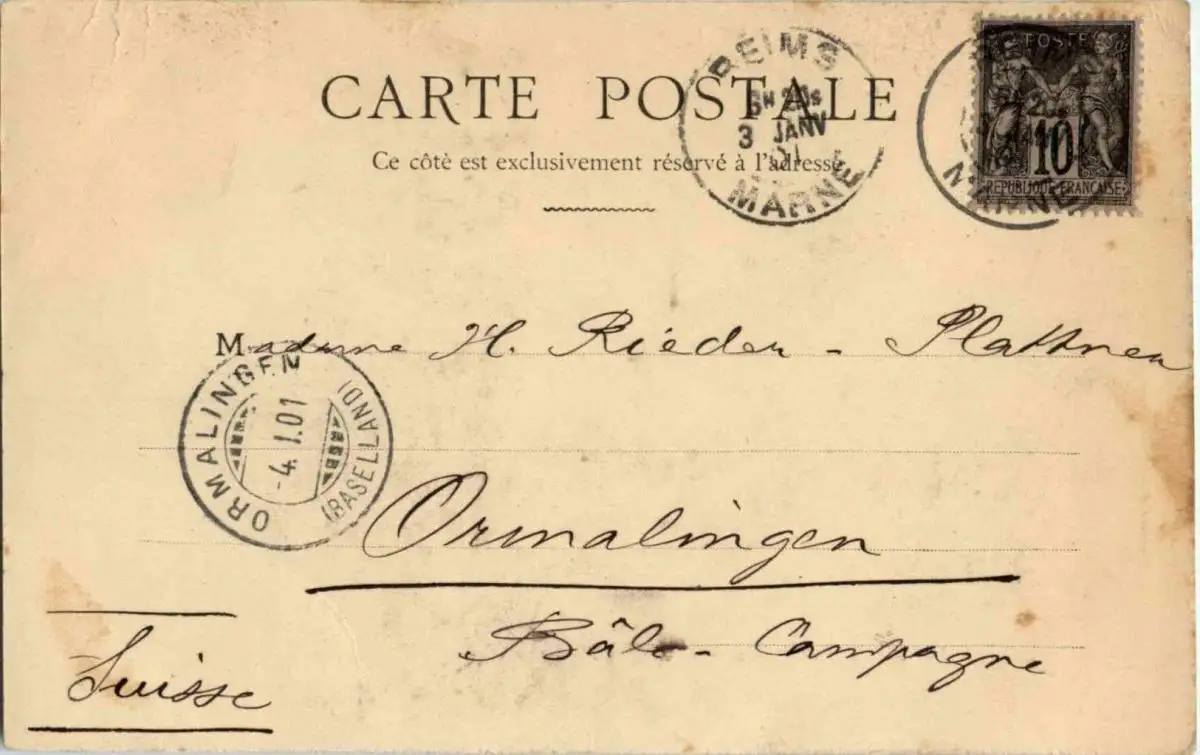 CARTE POSTALE
Ce côtè est exclusivement réservé à l'adresse
REIMS
3 JANV
01
MARNE
POSTES
10
REPUBLIQUE FRANÇAISE
MARNE
Madame H. Rieder - Plattner
ORMALINGEN
-4. I. 01
(BASELLAND)
Ormalingen
Bâle - Campagne
Suisse